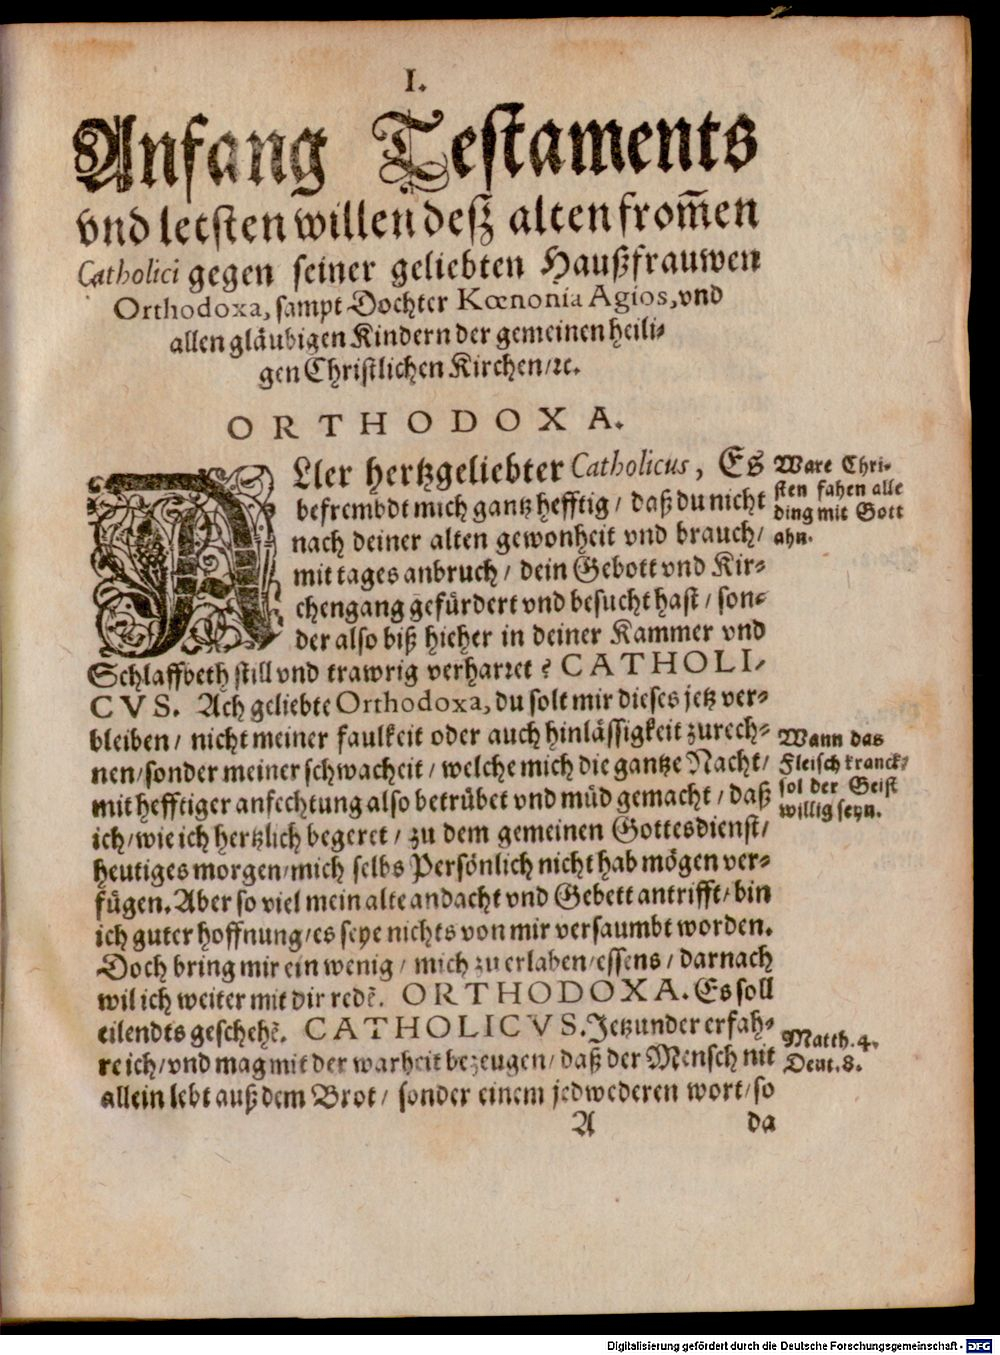 I.
Anfang Testaments
vnd letsten willen deß alten from̃en
Catholici gegen seiner geliebten Haußfrauwen
Orthodoxa, sampt Dochter Kœnonia Agios, vnd
allen gläubigen Kindern der gemeinen heili-
gen Christlichen Kirchen/ ꝛc.
ORTHODOXA.
ALler hertzgeliebter Catholicus, Es
befrembdt mich gantz hefftig/ daß du nicht
nach deiner alten gewonheit vnd brauch/
mit tages anbruch/ dein Gebott vnd Kir-
chengang gefürdert vnd besucht hast/ son-
der also biß hieher in deiner Kammer vnd
Schlaffbeth still vnd trawrig verharret? CATHOLI-
CVS. Ach geliebte Orthodoxa, du solt mir dieses jetz ver-
bleiben/ nicht meiner faulkeit oder auch hinlässigkeit zurech-
nen/ sonder meiner schwacheit/ welche mich die gantze Nacht/
mit hefftiger anfechtung also betrübet vnd müd gemacht/ daß
ich/ wie ich hertzlich begeret/ zu dem gemeinen Gottesdienst/
heutiges morgen/ mich selbs Persönlich nicht hab mögen ver-
fügen. Aber so viel mein alte andacht vnd Gebett antrifft/ bin
ich guter hoffnung/ es seye nichts von mir versaumbt worden.
Doch bring mir ein wenig/ mich zu erlaben/ essens/ darnach
wil ich weiter mit dir redẽ. ORTHODOXA. Es soll
eilendts geschehẽ. CATHOLICVS. Jetzunder erfah-
re ich/ vnd mag mit der warheit bezeugen/ daß der Mensch nit
allein lebt auß dem Brot/ sonder einem jedwederen wort/ so
A da
Ware Chri-
sten fahen alle
ding mit Gott
ahn.
Wann das
Fleisch kranck/
sol der Geist
willig seyn.
Matth. 4.
Deut. 8.
Digitalisierung gefördert durch die Deutsche Forschungsgemeinschaft - DFG